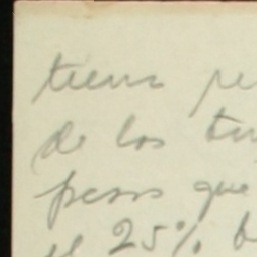 tiene
de los
pesos que
el 25%